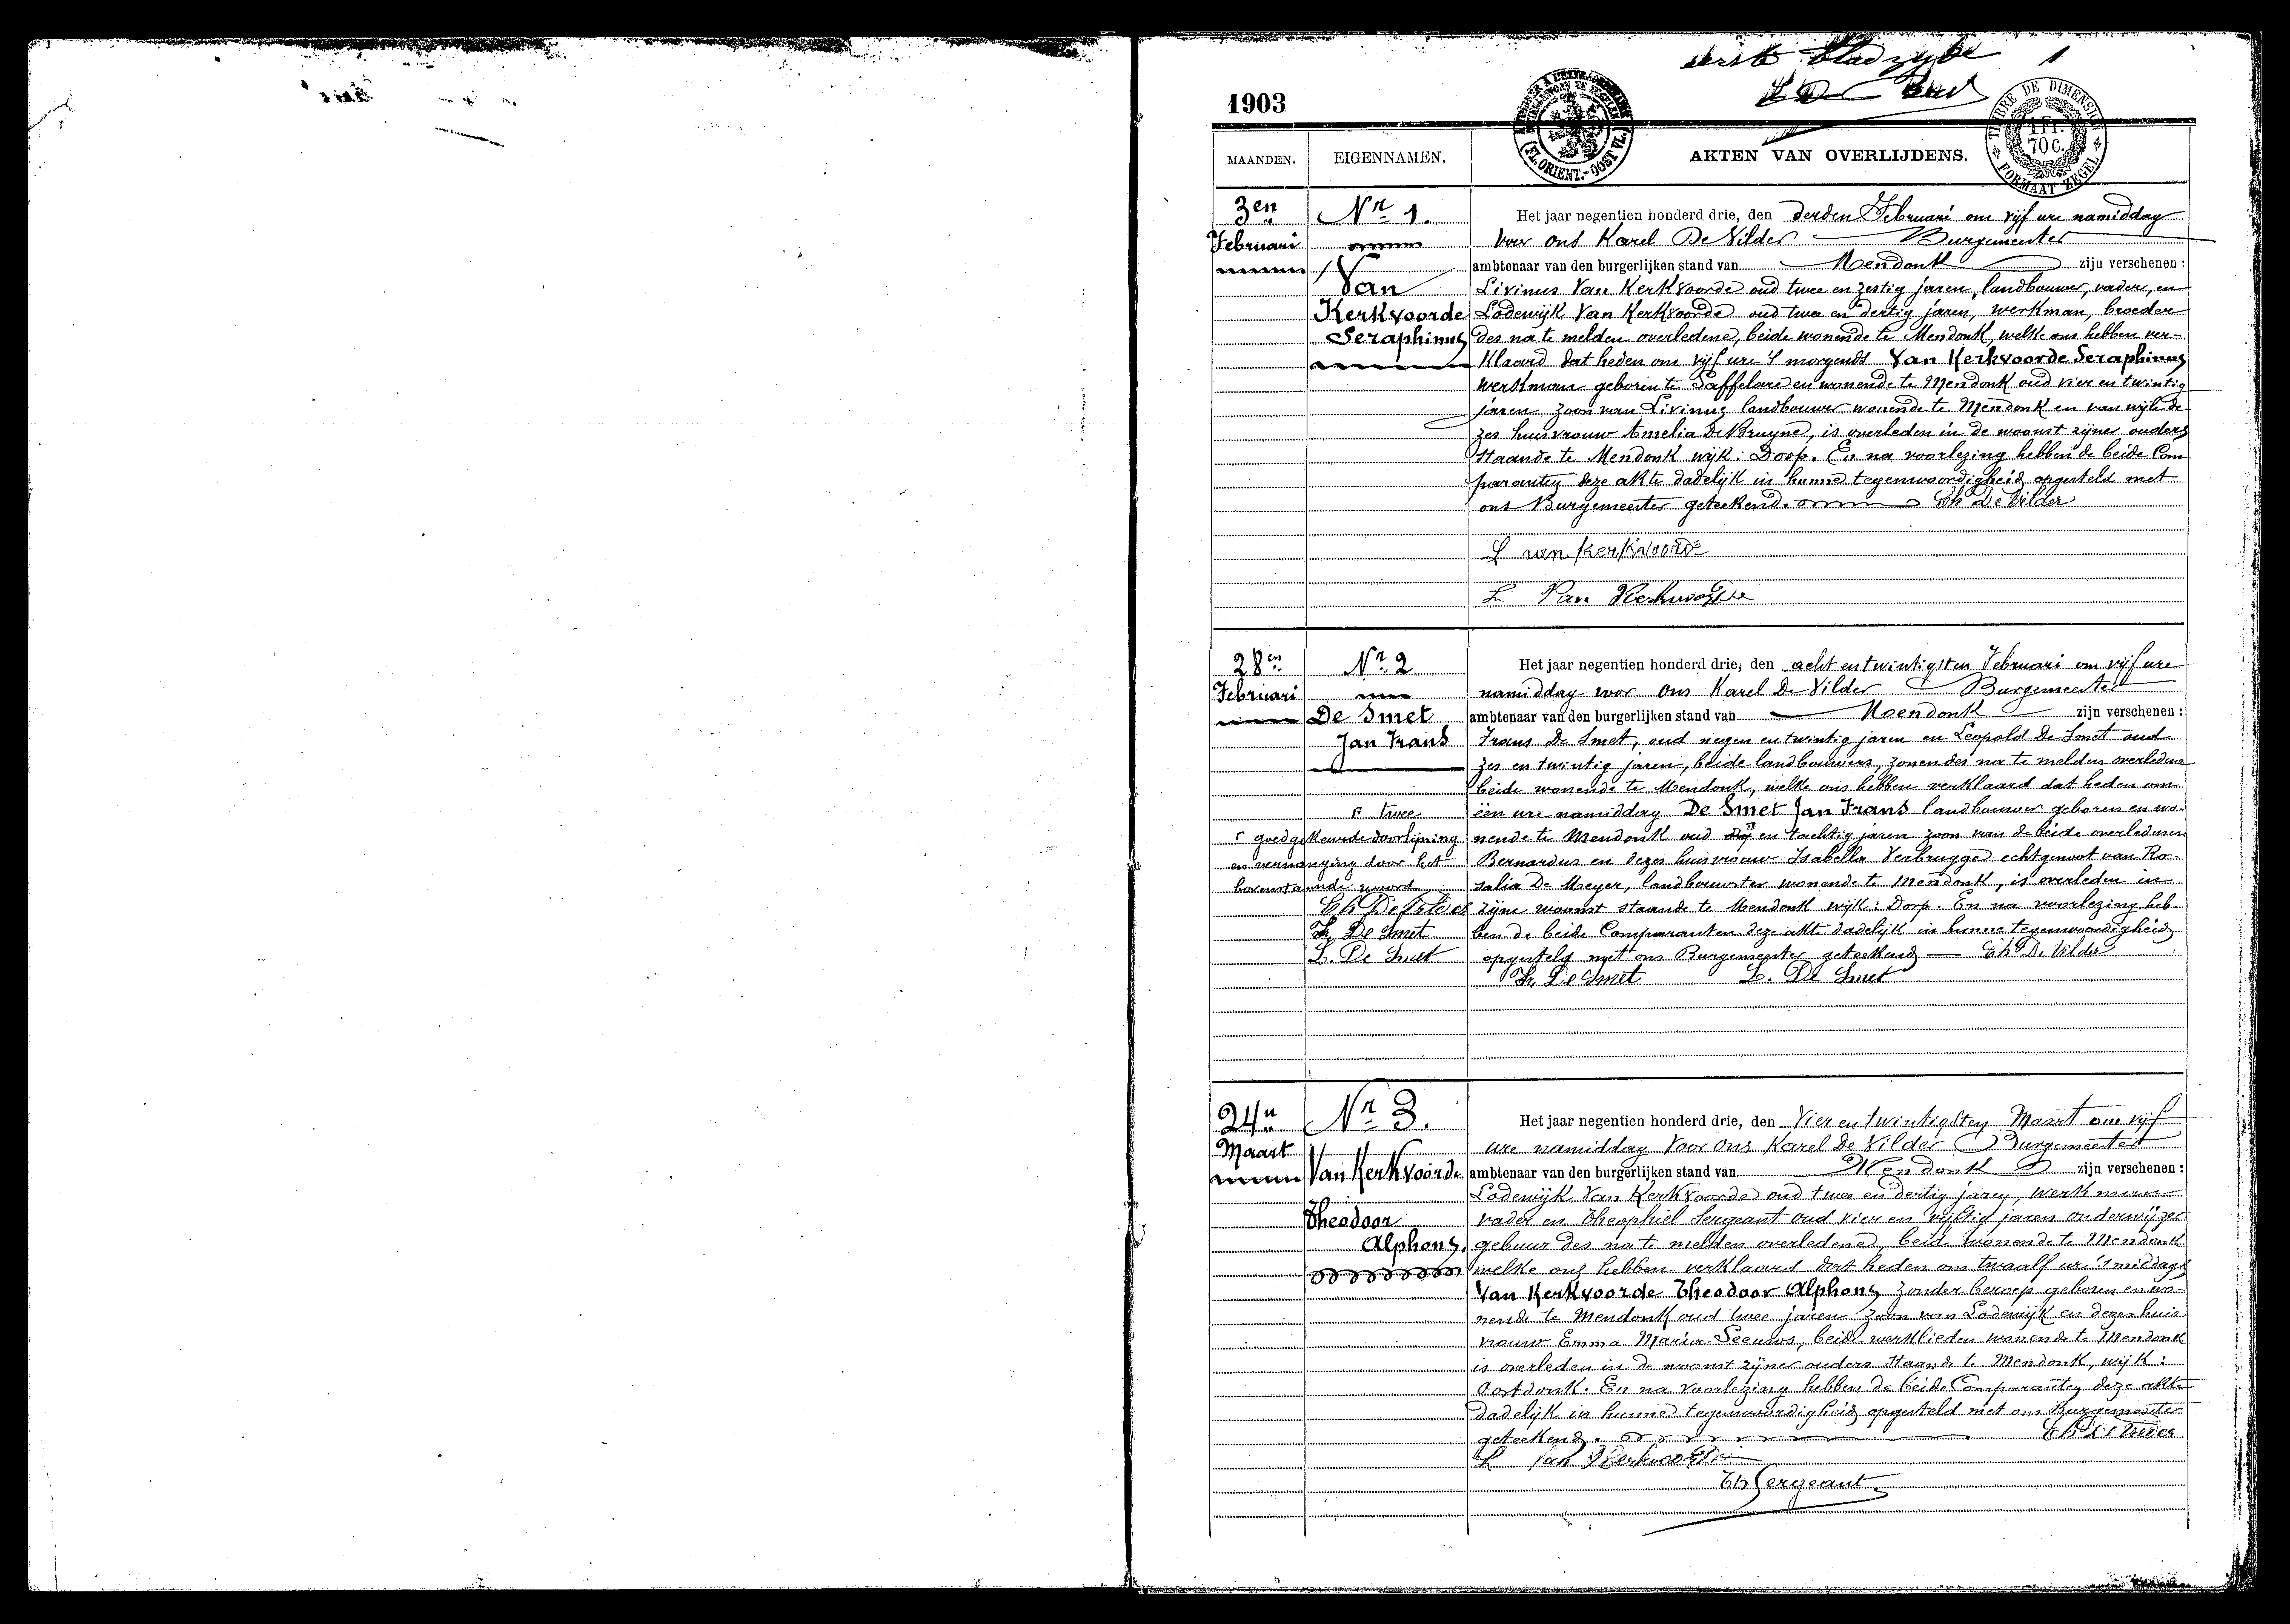 eerste bladzijde 1
1903
(FL. ORIENT.- OOST VL.)
TIMBRE DE DIMENSION
1 Fr.
70 C.
FORMAAT ZEGEL
MAANDEN. EIGENNAMEN. AKTEN VAN OVERLIJDENS.
3en
Februari
Nr 1.
Van
Kerkvoorde
Seraphinus
Het jaar negentien honderd drie, den derden Februari om vijf ure namiddag
voor ons Karel De Vilder Burgemeester
ambtenaar van den burgerlijken stand van Mendonk zijn verschenen :
Livinus Van Kerkvoorde oud twee en zestig jaren, landbouwer, vader, en
Lodewijk Van Kerkvoorde oud twee en dertig jaren, werkman, broeder
des na te melden overledene, beide wonende te Mendonk, welke ons hebben ver-
klaard dat heden om vijf ure 's morgends Van Kerkvoorde Seraphinus
werkman geboren te Saffelare en wonende te Mendonk oud vier en twintig
jaren zoon van Livinus landbouwer wonende te Mendonk en van wijle de-
zes huisvrouw Amelia De Bruyne, is overleden in de woonst zijner ouders
staande te Mendonk wijk: Dorp. En na voorlezing hebben de beide Com
paranten deze akte dadelijk in hunne tegenwoordigheid opgesteld met
ons Burgemeester geteekend. Ch De Vilder
L van kerkvoorde
L Van Kerkvoorde
28en
Februari
Nr 2
De Smet
Jan Frans
Het jaar negentien honderd drie, den acht en twintigsten Februari om vijf ure
namiddag voor ons Karel De Vilder Burgemeester
ambtenaar van den burgerlijken stand van Mendonk zijn verschenen :
Frans De Smet, oud negen en twintig jaren en Leopold De Smet oud
zes en twintig jaren, beide landbouwers, zonen des na te melden overledene
beide wonende te Mendonk, welke ons hebben verklaard dat heden om
één ure namiddag De Smet Jan Frans landbouwer geboren en wo-
nende te Mendonk oud drij en tachtig jaren zoon van de beide overledenen
Bernardus en dezes huisvrouw Isabella Verbrugge echtgenoot van Ro-
salia De Meyer, landbouwster wonende te Mendonk, is overleden in
zijne woonst staande te Mendonk wijk: Dorp. En na voorlezing heb
ben de beide Comparanten deze akte dadelijk in hunne tegenwoordigheid
opgesteld met ons Burgemeester geteekend Ch De Vilder
Fr. De Smet L. De Smet
twee
goedgekeurde doorlijning
en vervanging door het
bovenstaande woord
Ch De Vilder
Fr. De Smet
L. De Smet
24n
Maart
Nr 3.
Van Kerkvoorde
Theodoor
Alphons.
Het jaar negentien honderd drie, den Vier en twintigsten Maart om vijf
ure namiddag Voor Ons Karel De Vilder Burgemeester
ambtenaar van den burgerlijken stand van Mendonk zijn verschenen :
Lodewijk Van Kerkvoorde oud twee en dertig jaren, werkman
vader en Theophiel Sergeant oud vier en vijftig jaren onderwijzer
gebuur des na te melden overledene, beide wonende te Mendonk
welke ons hebben verklaard dat heden om twaalf ure 's middags
Van Kerkvoorde Theodoor Alphons zonder beroep geboren en wo-
nende te Mendonk oud twee jaren zoon van Lodewijk en dezes huis-
vrouw Emma Maria Seeuws, beide werklieden wonende te Mendonk
is overleden in de woonst zijner ouders staande te Mendonk, wijk:
Oostdonk. En na voorlezing hebben de beide Comparanten deze akte
dadelijk in hunne tegenwoordigheid opgesteld met ons Burgemeester
geteekend. Ch De Vilder
L Van Kerkvoorde
Th Sergeant